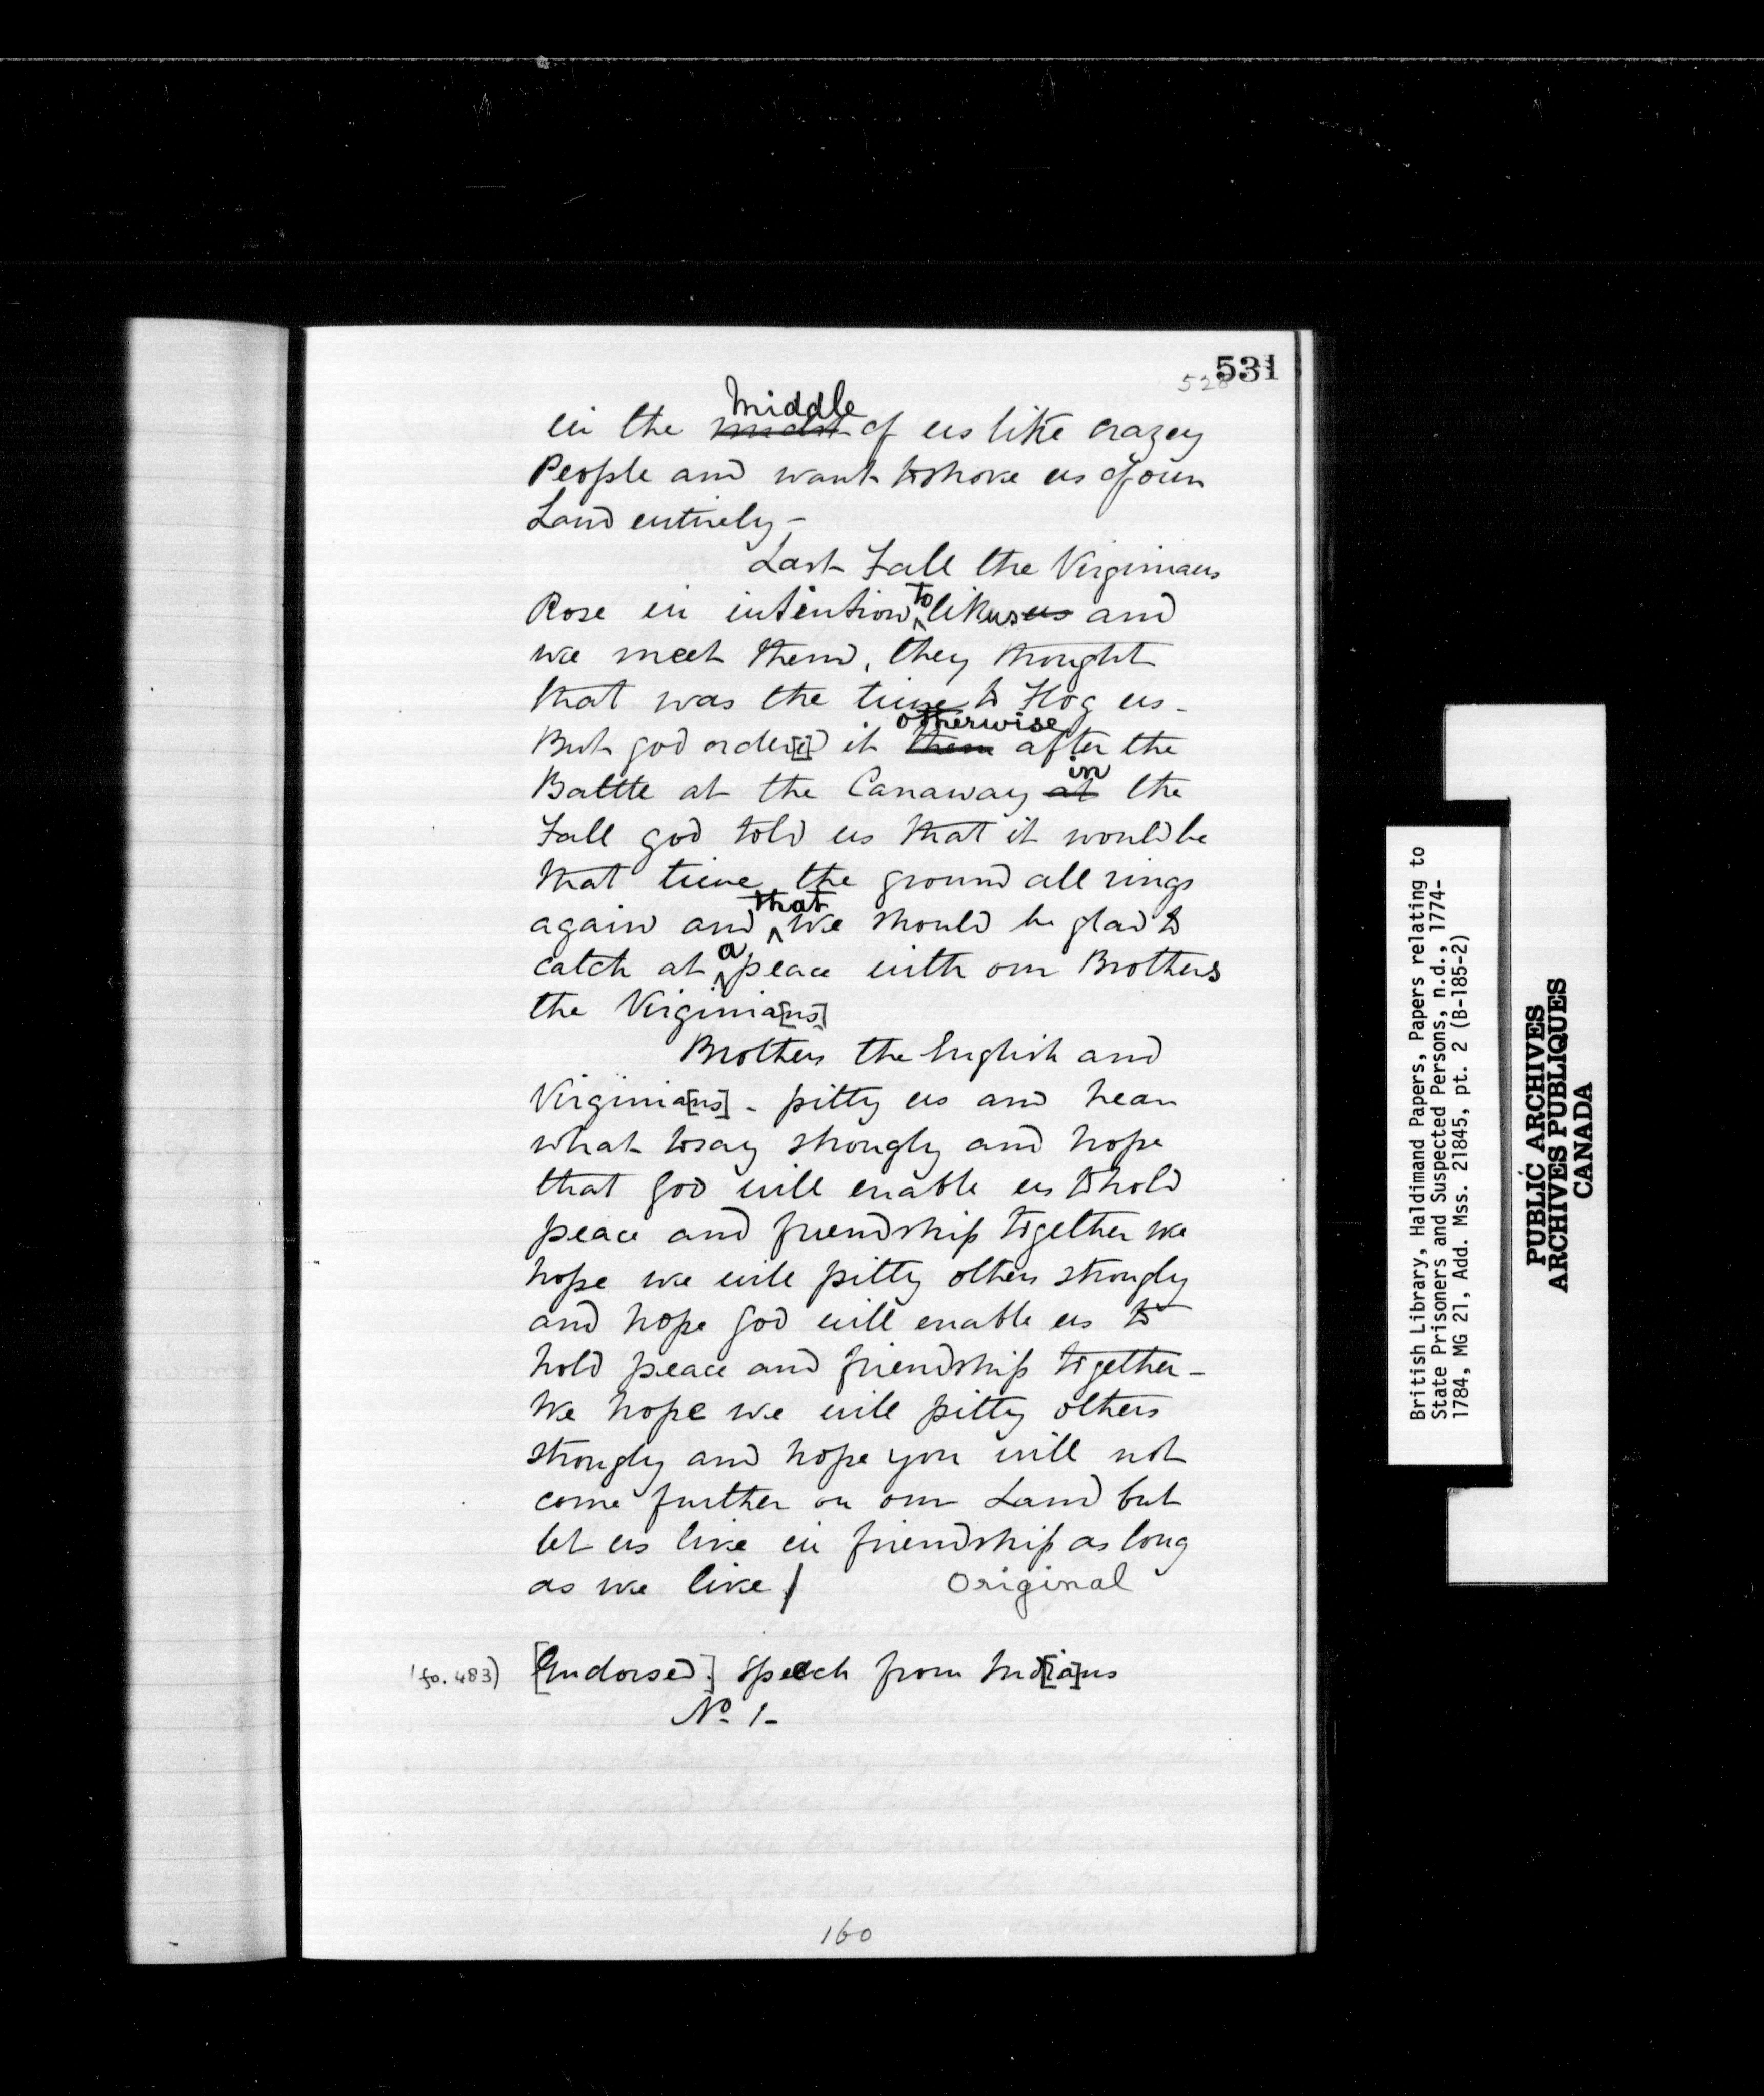 531
528
in the ~~midst~~ Middle of us like crazey
People and want to shove us of our
Land entirely -
Last Fall the Virginians
Rose in intention to lik us ~~us~~ and
we meet them, they thought
that was the time to Flog us -
But god order[e]d it ~~them~~ otherwise after the
Battle at the Canaway ~~at~~ in the
Fall god told us that it would be
that time the ground all rings
again and that we should be glad to
catch at a peace with our Brothers
the Virginia[ns]
Brothers the English and
Virginia[ns] - pitty us and hear
what to say strongly and hope
that god will enable us to hold
peace and friendship together we
hope we will pitty others strongly
and hope god will enable us to
hold peace and friendship together -
We hope we will pitty others
strongly and hope you will not
come further on our Land but
let us live in friendship as long
as we live / Original
(fo. 483) [Endorsed.] Speech from Ind[ia]ns
No. 1 -
160
British Library, Haldimand Papers, Papers relating to
State Prisoners and Suspected Persons, n.d., 1774-
1784, MG 21, Add. Mss. 21845, pt. 2 (B-185-2)
PUBLIC ARCHIVES
ARCHIVES PUBLIQUES
CANADA